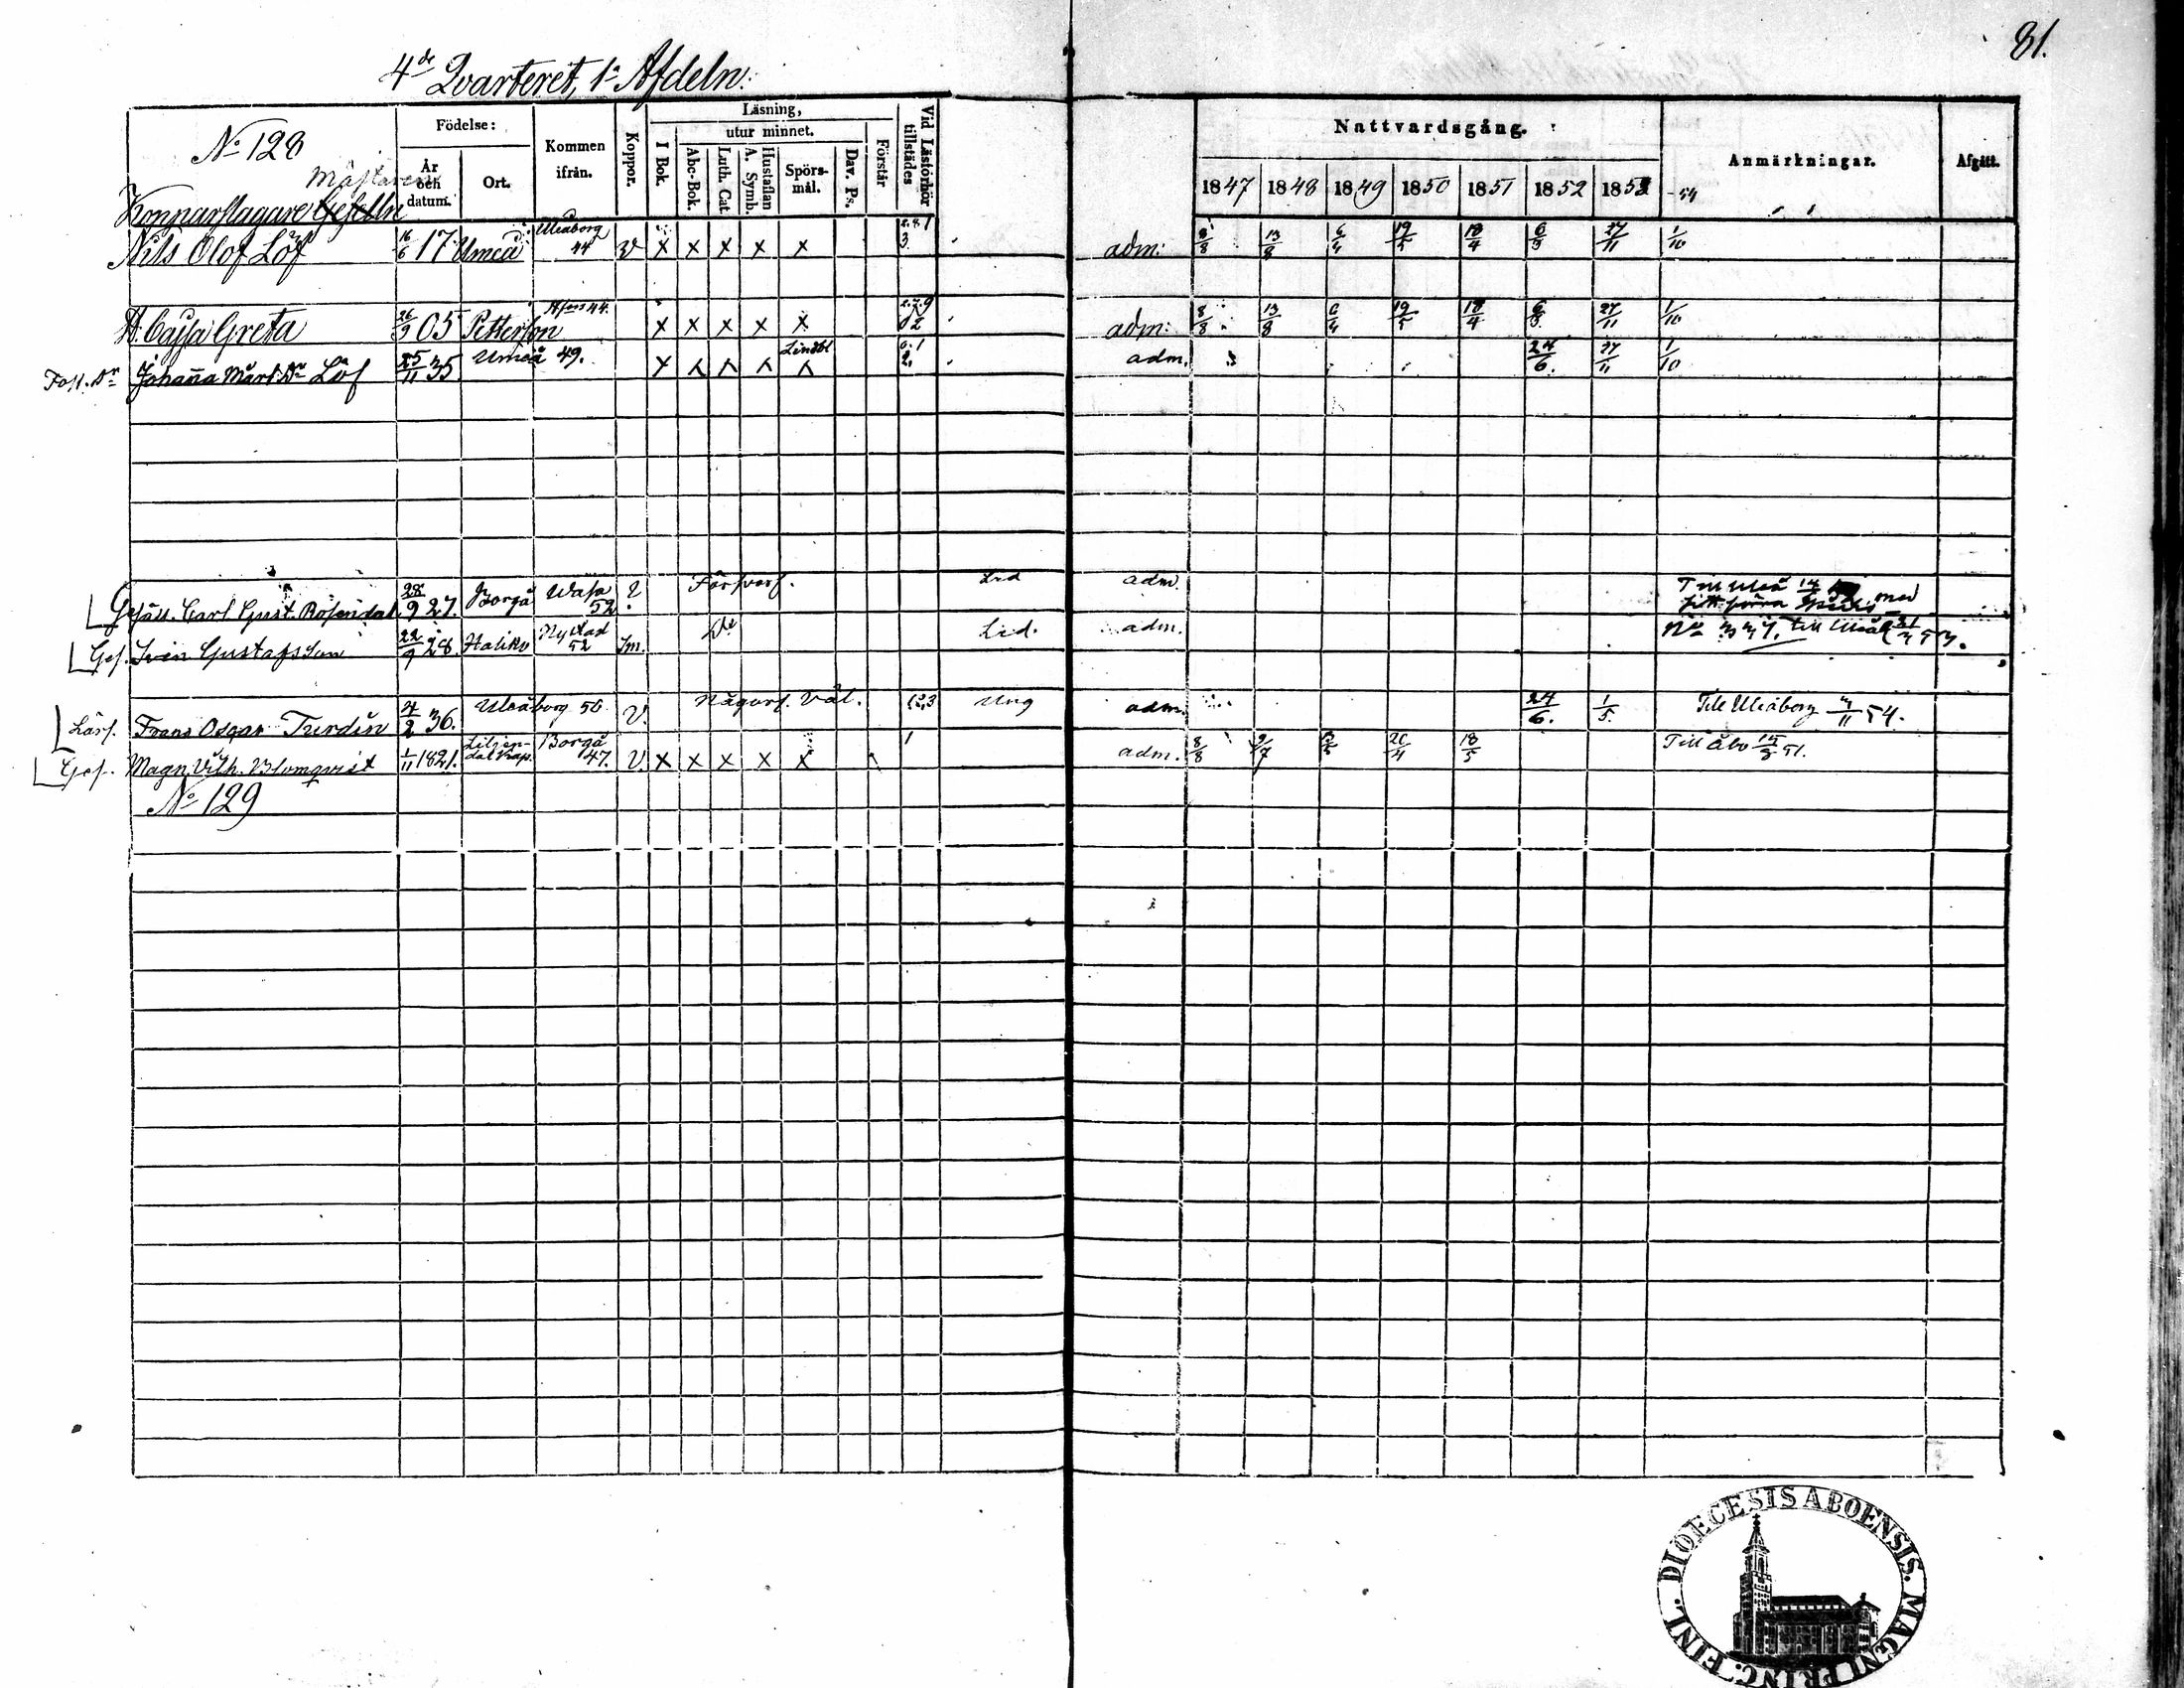 81.
4de Qvarteret, 1a Afdeln:
No 128
Födelse:
År och datum.
Ort.
Kommen ifrån.
Koppor.
Läsning,
I Bok.
utur minnet.
Abc-Bok.
Luth. Cat.
Hustaflan A. Symb.
Spörsmål.
Dav. Ps.
Förstår
Vid Läsförhör tillstädes
Nattvardsgång.
1847 1848 1849 1850 1851 1852 1853 -54
Anmärkningar.
Afgått.
Mästaren
Kopparslagare Geselln
Nils Olof Löf 16/6 17 Umeå Uleåborg 44 v x x x x x adm: 8/8 13/8 6/4 19/5 18/4 6/3 27/11 1/10
H. Cajsa Greta 26/9 05 Petterson 44. x x x x x adm: 8/8 13/8 6/4 19/5 18/4 6/3 27/11 1/10
Fost. Dr Johanna Märt. Dr Löf 25/11 35 Umeå 49. x adm. 24/6. 27/11 1/10
Gesäll. Carl Gust. Rosendal 28/9 27. Borgå Wasa 52 Försvarl. Lid adm. med
Ges. Sven Gustafsson 22/9 28. Haliko Nystad 52 Sm. Do Lid. adm. No 337. till Uleåb
Lärl. Frans Oscar Turdin 4/2 36. Uleåborg 50 V. Någorl. väl. Ung adm. 24/6. 1/5. Till Uleåborg 3/11 54.
Ges. Magn. Vilh. Blomqvist 1/11 1821. Liljendal Kap. Borgå 47. V. x x x x x 1 adm. 8/8 9/7 20/4 18/5 Till Åbo 51.
No 129
DIOECESIS ABOENSIS. MAGNI PRINC. FINL.